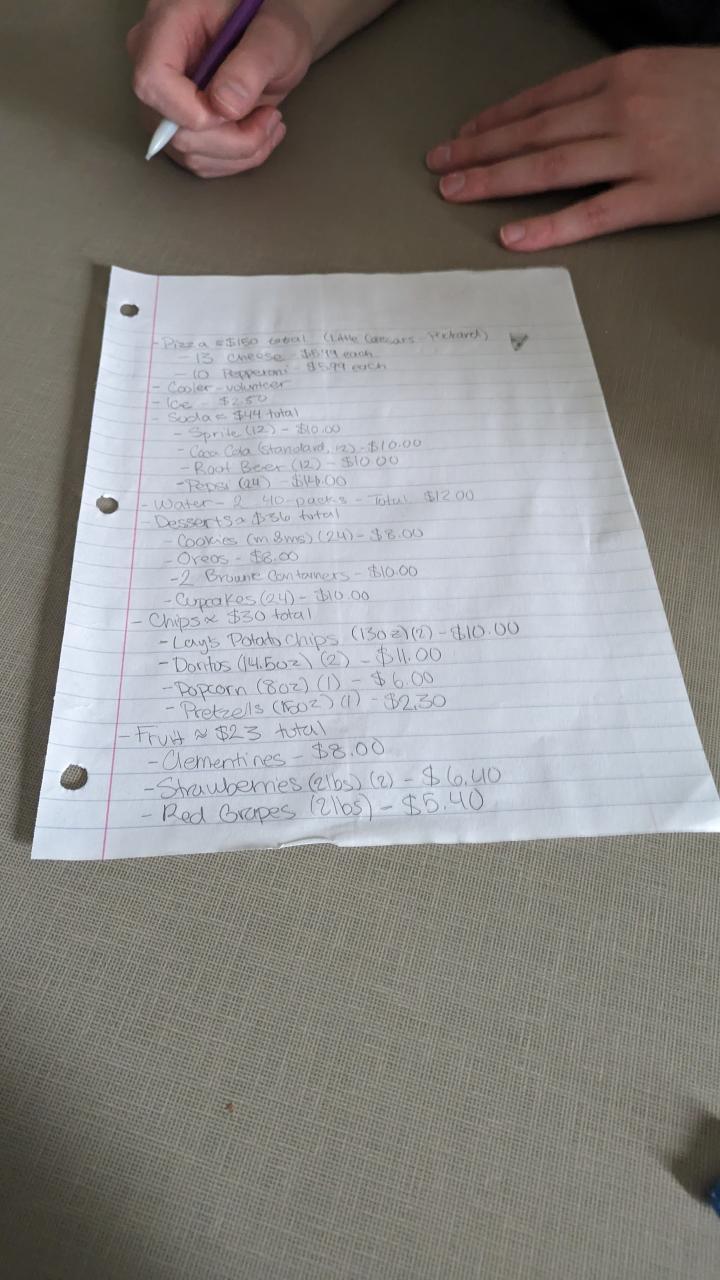 - Pizza ≈ $150 total (Little Caesars - Pickard)
- 13 Cheese - $5.99 each
- 10 Pepperoni - $5.99 each
- Cooler - volunteer
- Ice - $2.50
- Soda ≈ $44 total
- Sprite (12) - $10.00
- Coca Cola (standard, 12) - $10.00
- Root Beer (12) - $10.00
- Pepsi (24) - $14.00
- Water - 2 40-packs - Total $12.00
- Desserts ≈ $36 total
- Cookies (m&ms) (24) - $8.00
- Oreos - $8.00
- 2 Brownie Containers - $10.00
- Cupcakes (24) - $10.00
- Chips ≈ $30 total
- Lay's Potato Chips (13oz) (2) - $10.00
- Doritos (14.5oz) (2) - $11.00
- Popcorn (8oz) (1) - $6.00
- Pretzells (1) - $2.30
- Fruit ≈ $23 total
- Clementines - $8.00
- Strawberries (2lbs) (2) - $6.40
- Red Grapes (2lbs) - $5.40